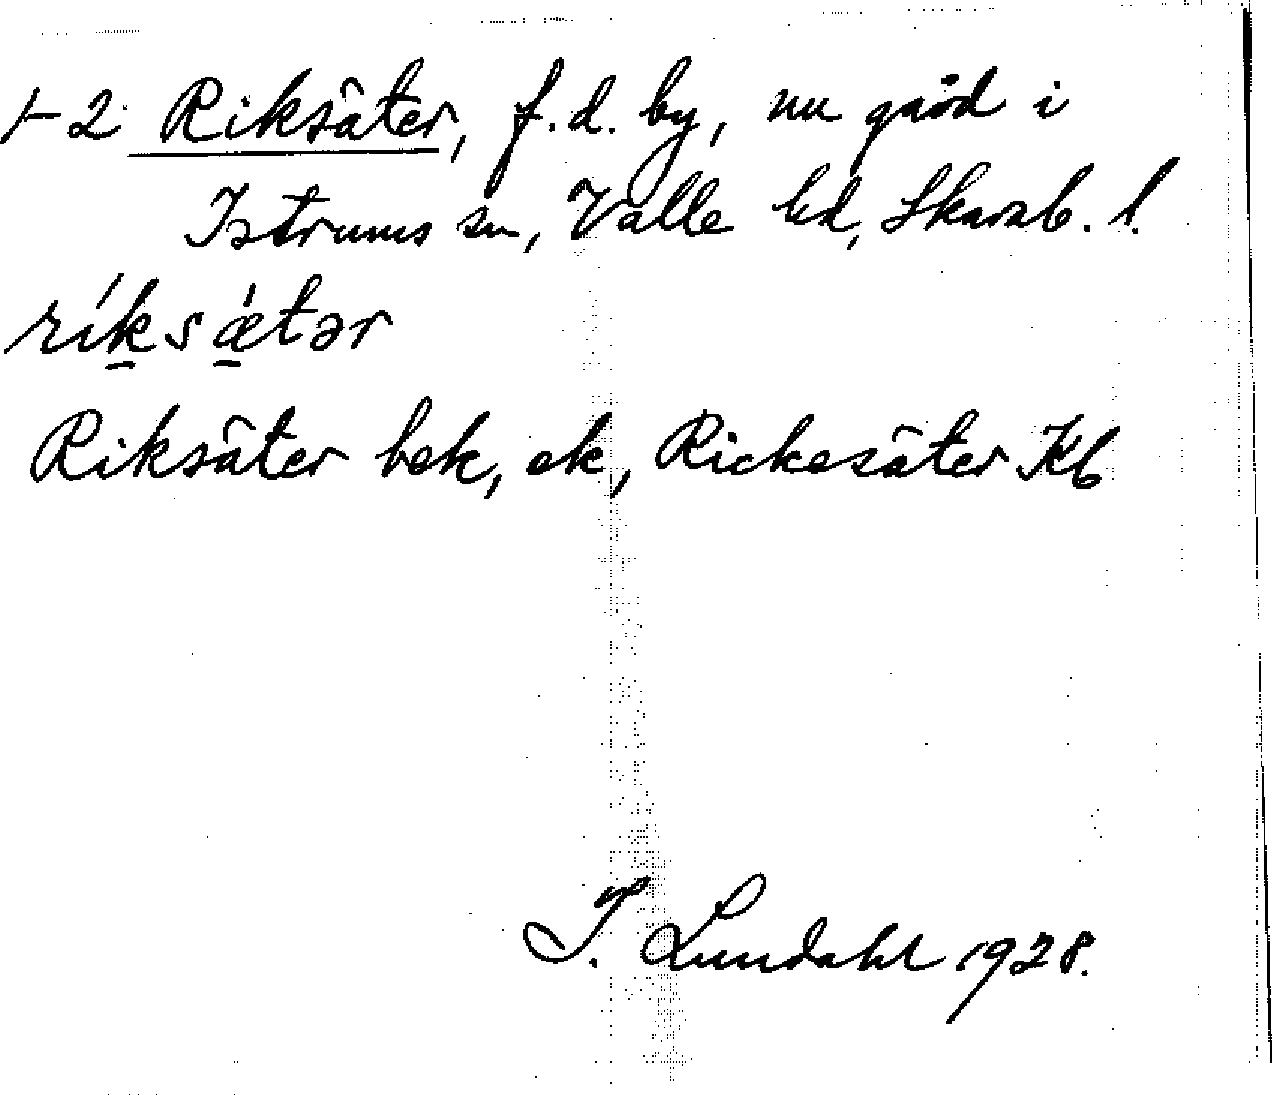 1-2 Riksäter, f.d. by, nu gård i
Istrums sn, Valle hd, Skarab. l.
ríksǽtər
Riksäter bek, ek, Rickesäter Kb
I. Lundahl 1928.